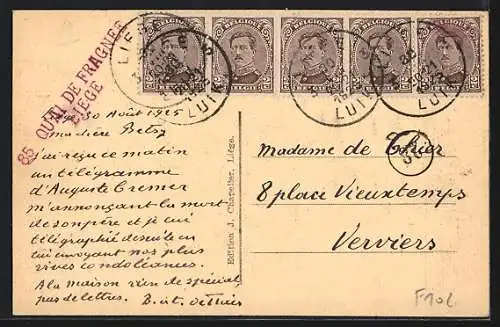 BELGIQUE BELGIQUE BELGIQUE BELGIQUE BELGIQUE
LIEGE LUIK
85 QUAI DE FRAGNEE
LIÉGE
30 Août 1925
ma chère Betsy
j'ai reçu ce matin
un télégramme
d'Auguste Cremer
m'annonçant la mort
de son père et je lui
télégraphie de suite en
lui envoyant nos plus
vives condoléances.
A la maison rien de spécial,
pas de lettres.
Edition J. Chapelier, Liége.
Madame de
8 place Vieuxtemps
Verviers
F10c